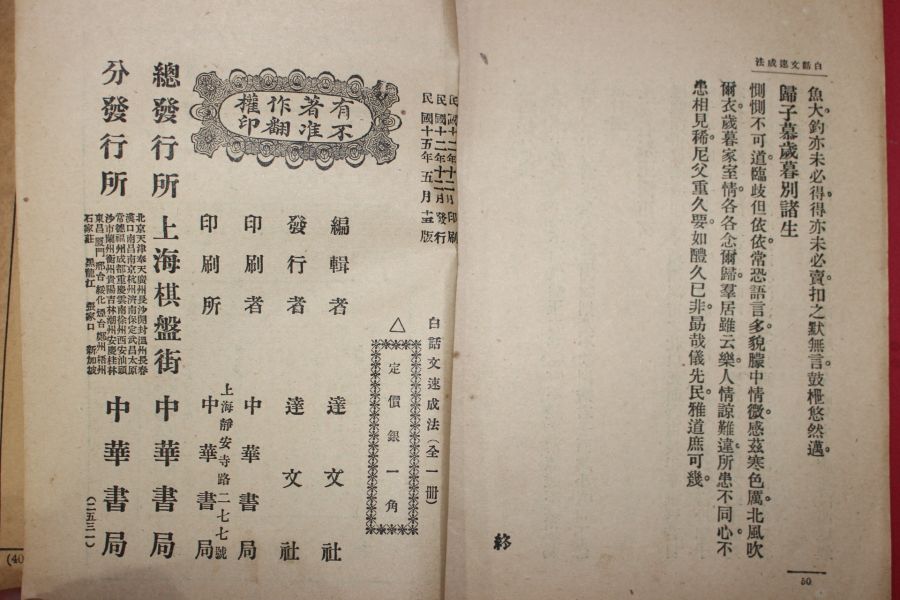 白話文速成法
魚大。釣亦未必得。得亦未必賣。扣之默無言。鼓枻悠然邁。
歸子慕歲暮別諸生
惻惻不可道。臨歧但依依。常恐語言多。貌朦中情微。感茲寒色厲。北風吹
爾衣。歲暮家室情。各各念爾歸。羣居雖云樂。人情諒難違。所患不同心。不
患相見稀。尼父重久要。如醴久已非。勗哉儀先民。雅道庶可幾。
終
50
民國十二年十二月印刷
民國十二年十二月發行
民國十五年五月 版
白話文速成法(全一冊)
△定價銀一角
有不
著准
作翻
權印
編輯者 達文社
發行者 達文社
印刷者 中華書局
上海靜安寺路二七七號
印刷所 中華書局
總發行所 上海棋盤街 中華書局
分發行所
北京天津奉天廣州長沙開封溫州長春
漢口南昌南京杭州濟南保定武昌太原
常德福州成都重慶雲南徐州西安汕頭
沙市蘭州衡州貴陽吉林潮州安慶桂林
東昌 廈門 邢台 綏化 煙台 鄭州 梧州
石家莊 黑龍江 張家口 新加坡
中華書局
(二五三一)
(40